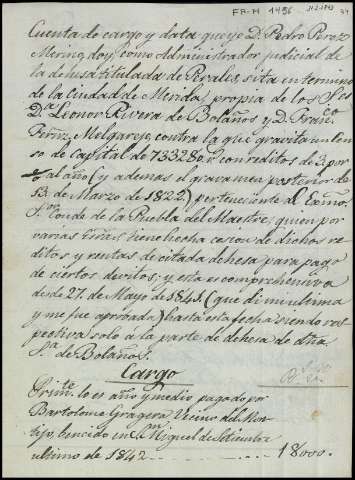 FR-M 1496
Cuenta de cargo y data que yo D. Pedro Perez
Merino, doy, como Administrador judicial de
la dehesa titulada de Perales, sita en termino
de la Ciudad de Merida, propia de los S.res
D.a Leonor Rivera de Bolaños y D. Fran.co
Perez Melgarejo, contra la que gravita un Cen-
so de Capital de 733280 r.s con reditos de 3 por
% al año (y ademas el gravamen posterior de
13 de Marzo de 1822) perteneciente al Exmo.
S.or Conde de la Puebla del Maestre, quien por
varias tiene hecha cesion de dichos re-
ditos y rentas de citada dehesa para pago
de ciertos devitos; y esta es comprehensiva
desde 27 de Mayo de 1841 (que di mi ultima
y me fue aprobada) hasta esta fecha siendo res-
pectiva solo á la parte de dehesa de dha
S.ra de Bolaños.
Cargo
Prim.te lo es año y medio pagado por
Bartolome Gragera Vecino del Mon-
tijo, bencido en S.n Miguel de Setiembre
ultimo de 1842 18000.